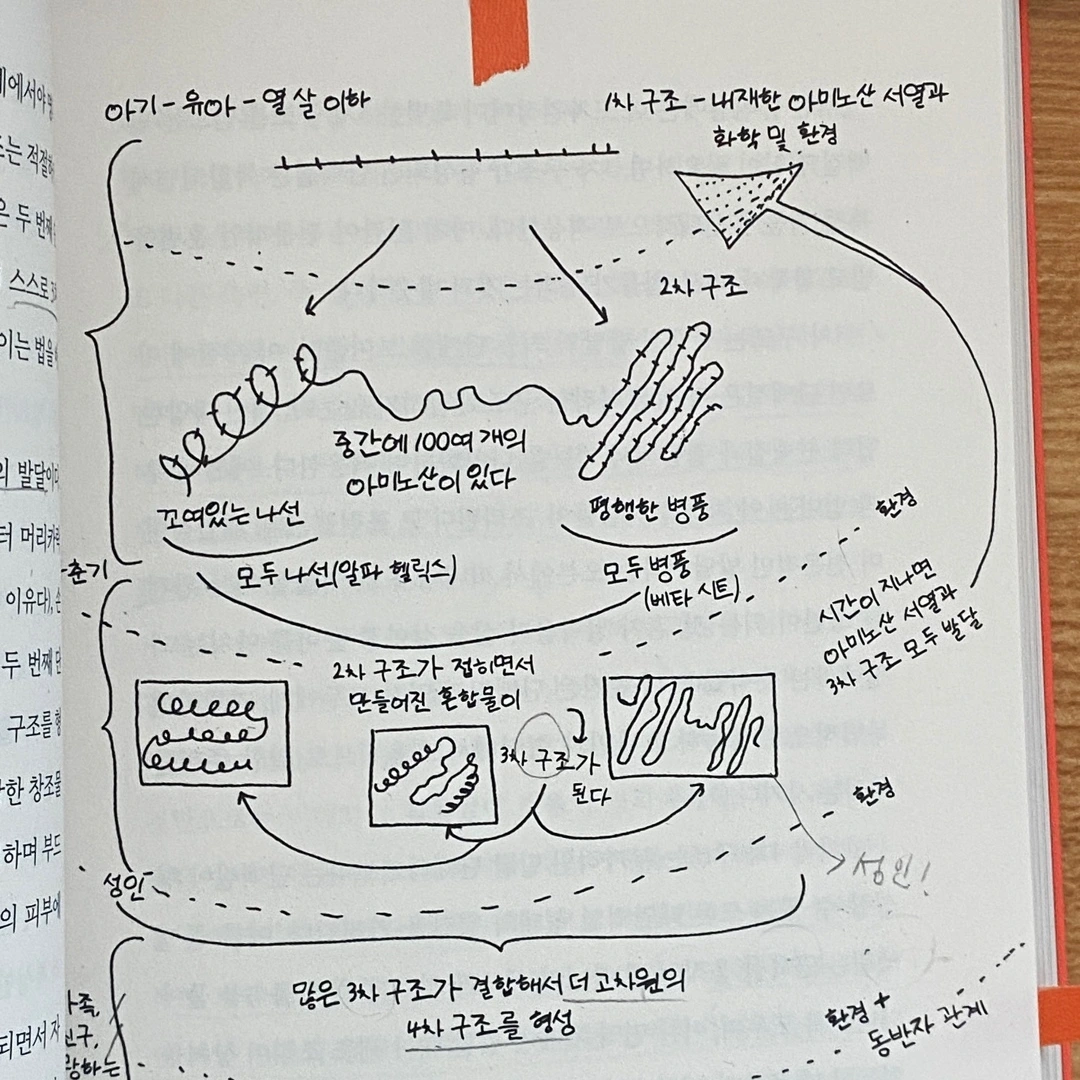 아기 - 유아 - 열 살 이하
1차 구조 - 내재한 아미노산 서열과
화학 및 환경
2차 구조
중간에 100여 개의
아미노산이 있다
꼬여있는 나선
평행한 병풍
환경
모두 나선(알파 헬릭스)
모두 병풍
(베타 시트)
시간이 지나면
아미노산 서열과
3차 구조 모두 발달
춘기
2차 구조가 접히면서
만들어진 혼합물이
3차 구조가
된다
환경
성인
성인!
많은 3차 구조가 결합해서 더 고차원의
4차 구조를 형성
환경 +
동반자 관계
스스로
이는 법을
의 발달이
터 머리카
이유다),
두 번째 단
구조를 형
한 창조물
하며 부드
의 피부에
되면서 자